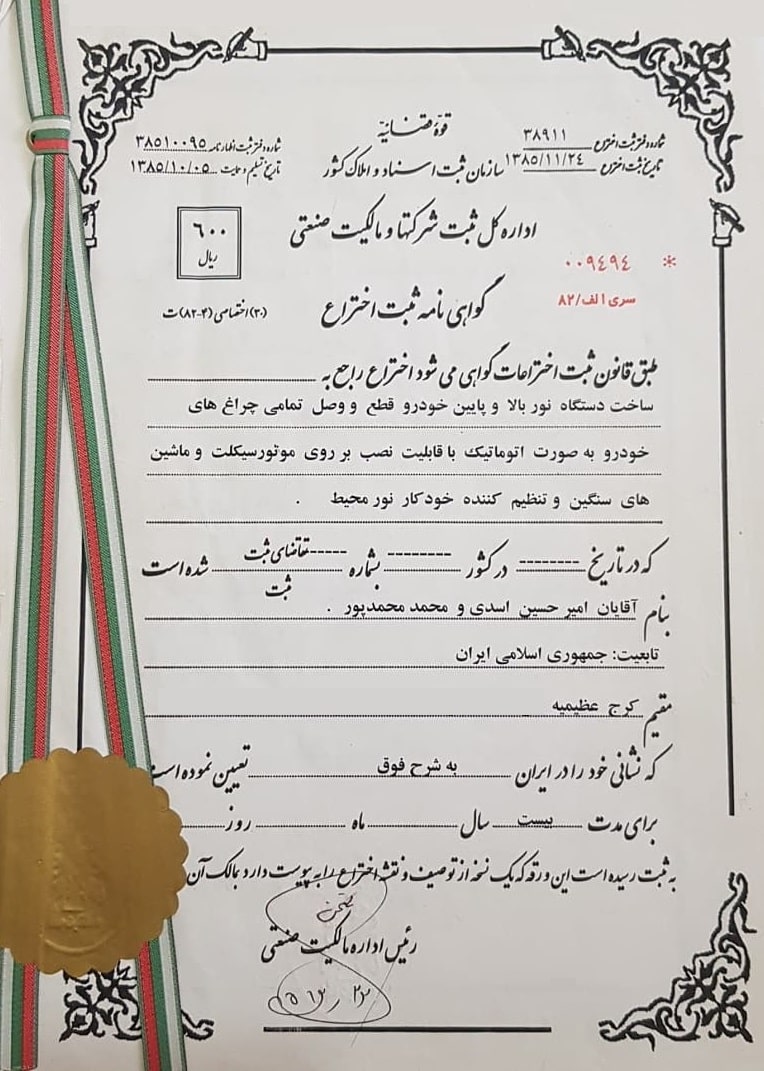 قوۀ قضائیه
شماره دفتر ثبت اختراع ۳۸۹۱۱
تاریخ ثبت اختراع ۱۳۸۵/۱۱/۲۴
سازمان ثبت اسناد و املاک کشور
شماره دفتر ثبت اظهارنامه ۳۸۵۱۰۰۹۵
تاریخ تسلیم و حمایت ۱۳۸۵/۱۰/۰۵
اداره کل ثبت شرکتها و مالکیت صنعتی
۶۰۰
ریال
* ۰۰۹۴۹۴
سری الف/۸۲
گواهی نامه ثبت اختراع
(۳۰) اختصاصی (۴-۸۲) ت
طبق قانون ثبت اختراعات گواهی می شود اختراع راجع به
ساخت دستگاه نور بالا و پایین خودرو قطع و وصل تمامی چراغ های
خودرو به صورت اتوماتیک با قابلیت نصب بر روی موتورسیکلت و ماشین
های سنگین و تنظیم کننده خودکار نور محیط .
که در تاریخ -------- در کشور -------- بشماره ----- تقاضای ثبت شده است
ثبت
بنام آقایان امیر حسین اسدی و محمد محمدپور .
تابعیت: جمهوری اسلامی ایران
مقیم کرج عظیمیه
که نشانی خود را در ایران به شرح فوق تعیین نموده است
برای مدت بیست سال ماه روز
به ثبت رسیده است این ورقه که یک نسخه از توصیف و نقشه اختراع را به پیوست دارد بمالک آن
رئیس اداره مالکیت صنعتی